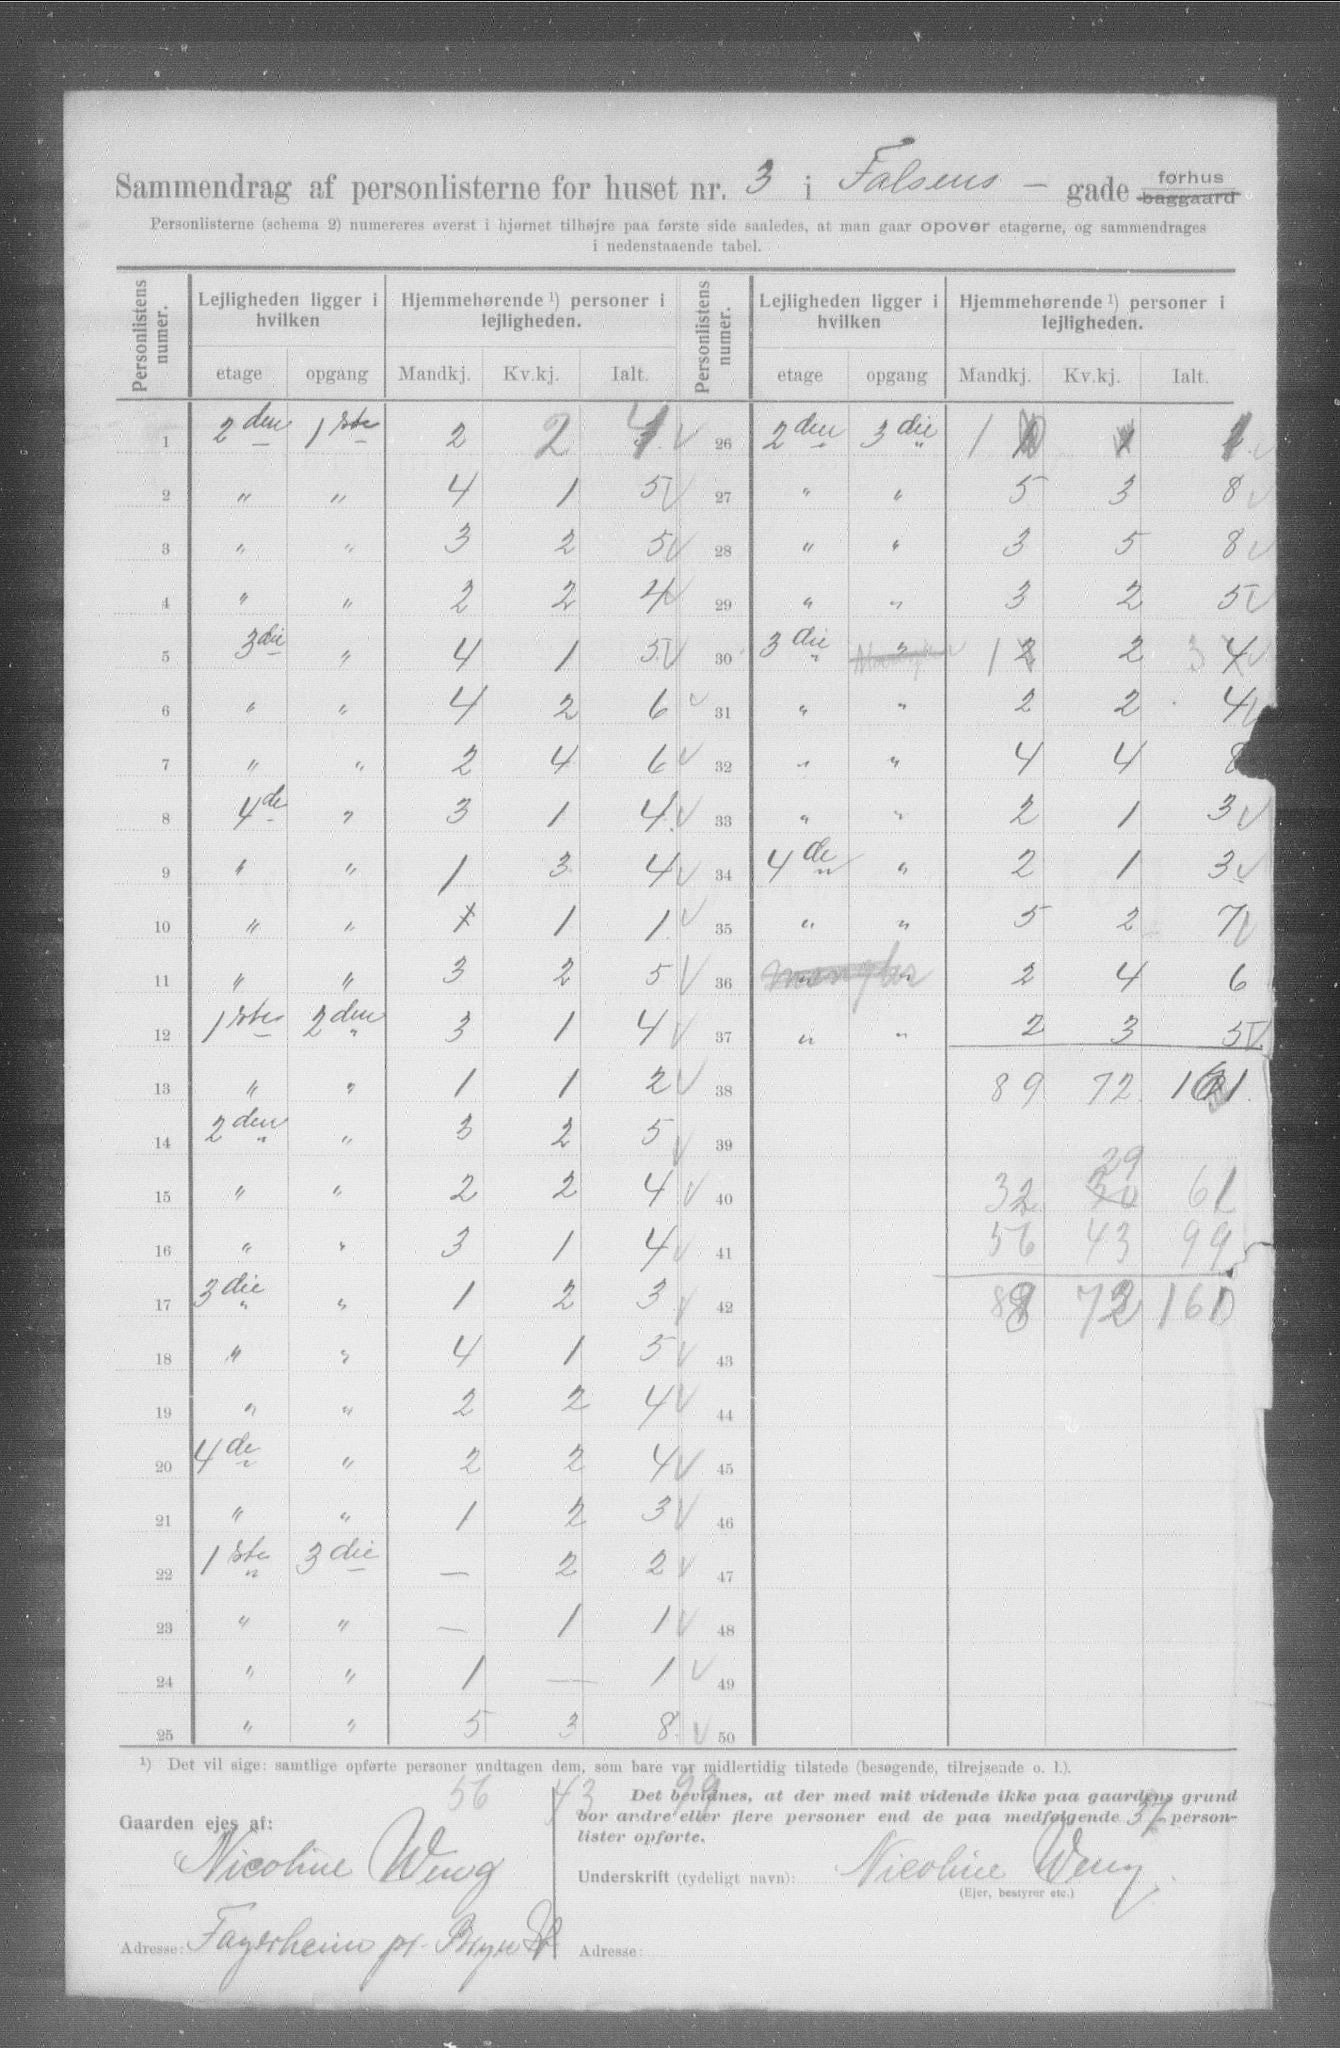 Sammendrag af personlisterne for huset nr. 3 i Falsens - gade forhus baggaard
Personlisterne (schema 2) numereres øverst i hjørnet tilhøjre paa første side saaledes, at man gaar opover etagerne, og sammendrages
i nedenstaaende tabel.
Personlistens numer. Lejligheden ligger i hvilken Hjemmehørende ¹) personer i lejligheden. Personlistens numer. Lejligheden ligger i hvilken Hjemmehørende ¹) personer i lejligheden.
etage opgang Mandkj. Kv.kj. Ialt. etage opgang Mandkj. Kv.kj. Ialt.
1 2 den 1 ste 2 2 4 √ 26 2 den 3 die 1 1 √
2 " " 4 1 5 √ 27 " " 5 3 8 √
3 " " 3 2 5 √ 28 " " 3 5 8 √
4 " " 2 2 4 √ 29 " " 3 2 5 √
5 3 die " 4 1 5 √ 30 3 die " 1 2 2 3 4 √
6 " " 4 2 6 √ 31 " " 2 2 4 √
7 " " 2 4 6 √ 32 " " 4 4 8
8 4 de " 3 1 4 √ 33 " " 2 1 3 √
9 " " 1 3 4 √ 34 4 de " 2 1 3 √
10 " " 1 1 √ 35 " " 5 2 7 √
11 " " 3 2 5 √ 36 mangler " 2 4 6
12 1 ste 2 den 3 1 4 √ 37 " " 2 3 5 √
13 " " 1 1 2 √ 38 89 72 161.
14 2 den " 3 2 5 √ 39
29
15 " " 2 2 4 √ 40 32 30 61
16 " " 3 1 4 √ 41 56 43 99
17 3 die " 1 2 3 √ 42 88 72 160
18 " " 4 1 5 √ 43
19 " " 2 2 4 √ 44
20 4 de " 2 2 4 √ 45
21 " " 1 2 3 √ 46
22 1 ste 3 die — 2 2 √ 47
23 " " — 1 1 √ 48
24 " " 1 — 1 √ 49
25 " " 5 3 8 √ 50
¹) Det vil sige: samtlige opførte personer undtagen dem, som bare var midlertidig tilstede (besøgende, tilrejsende o. l.).
56 43 99
Gaarden ejes af:
Nicoline Weng
Adresse: Fagerheim pr. Bryn St
Det bevidnes, at der med mit vidende ikke paa gaardens grund
bor andre eller flere personer end de paa medfølgende 37 person-
lister opførte.
Underskrift (tydeligt navn): Nicoline Weng.
(Ejer, bestyrer etc.)
Adresse: